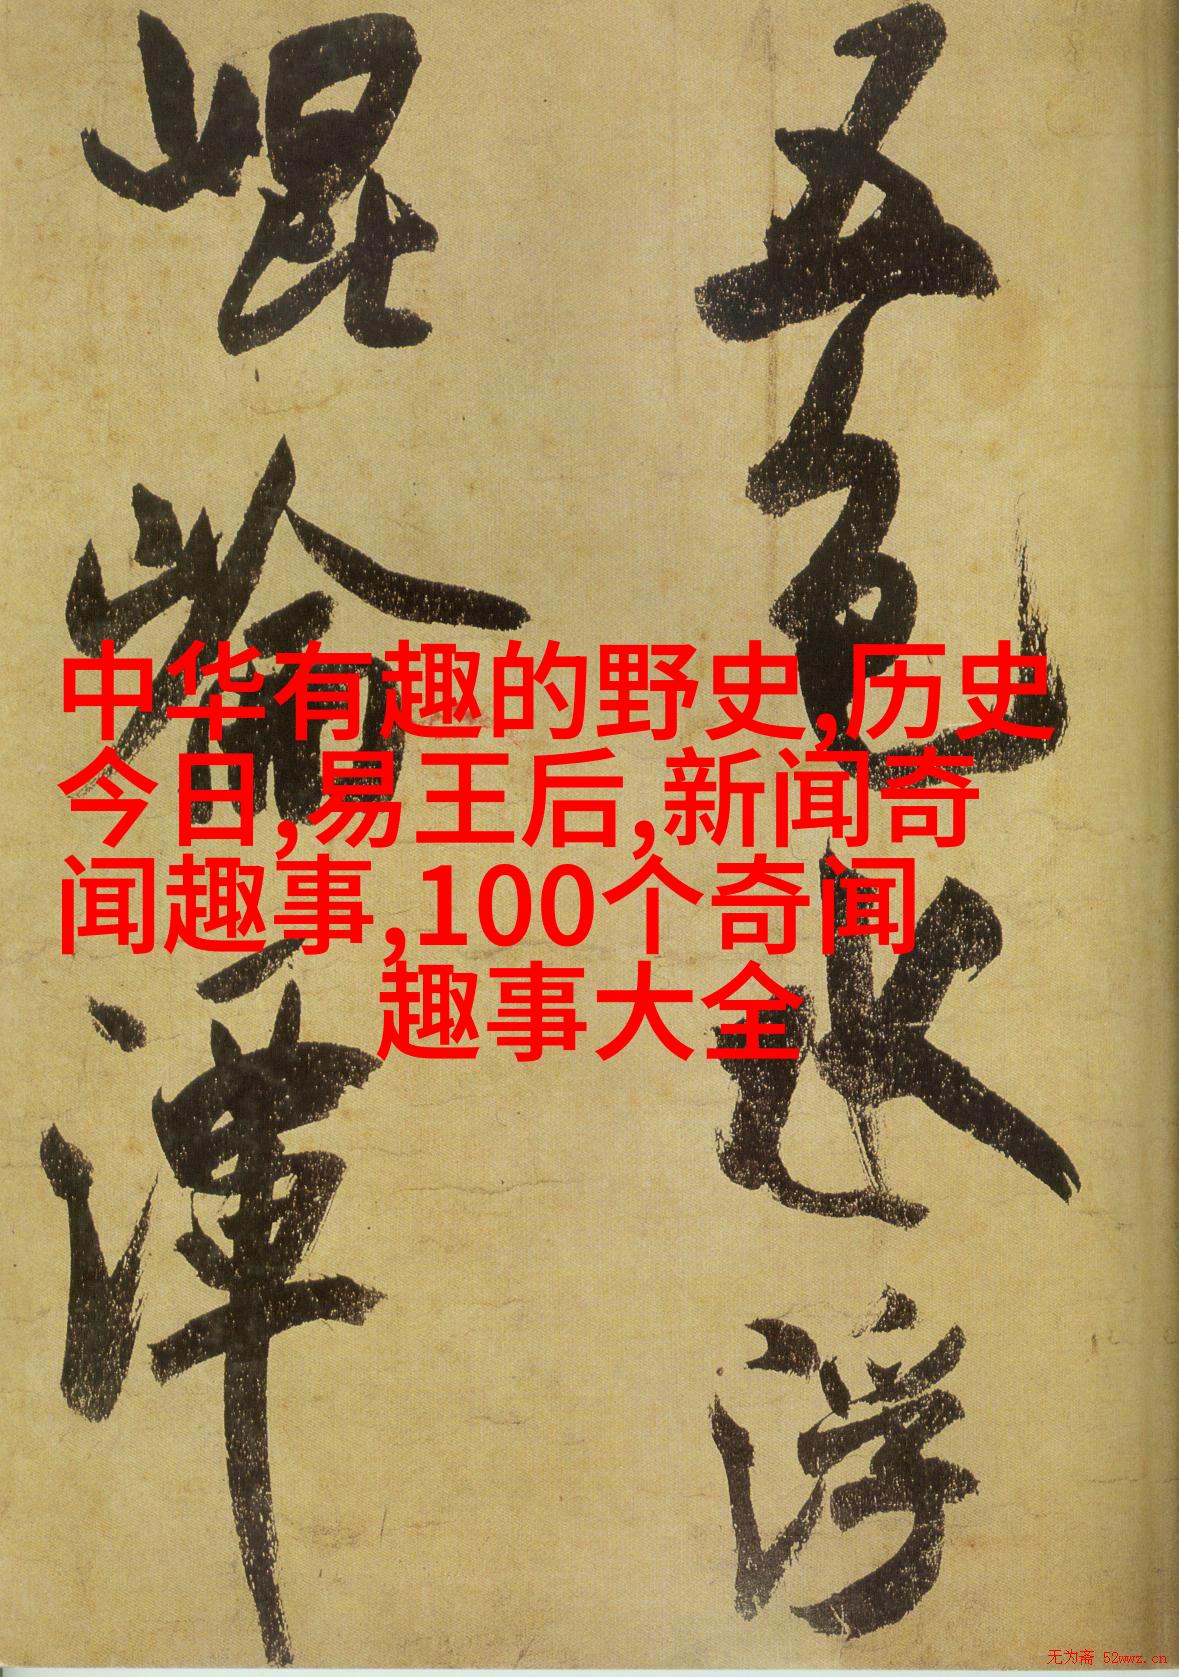 五色水浮
崐崘渾
中华有趣的野史,历史
今日,易王后,新闻奇
闻趣事,100个奇闻
趣事大全
无为斋 52wwz.cn